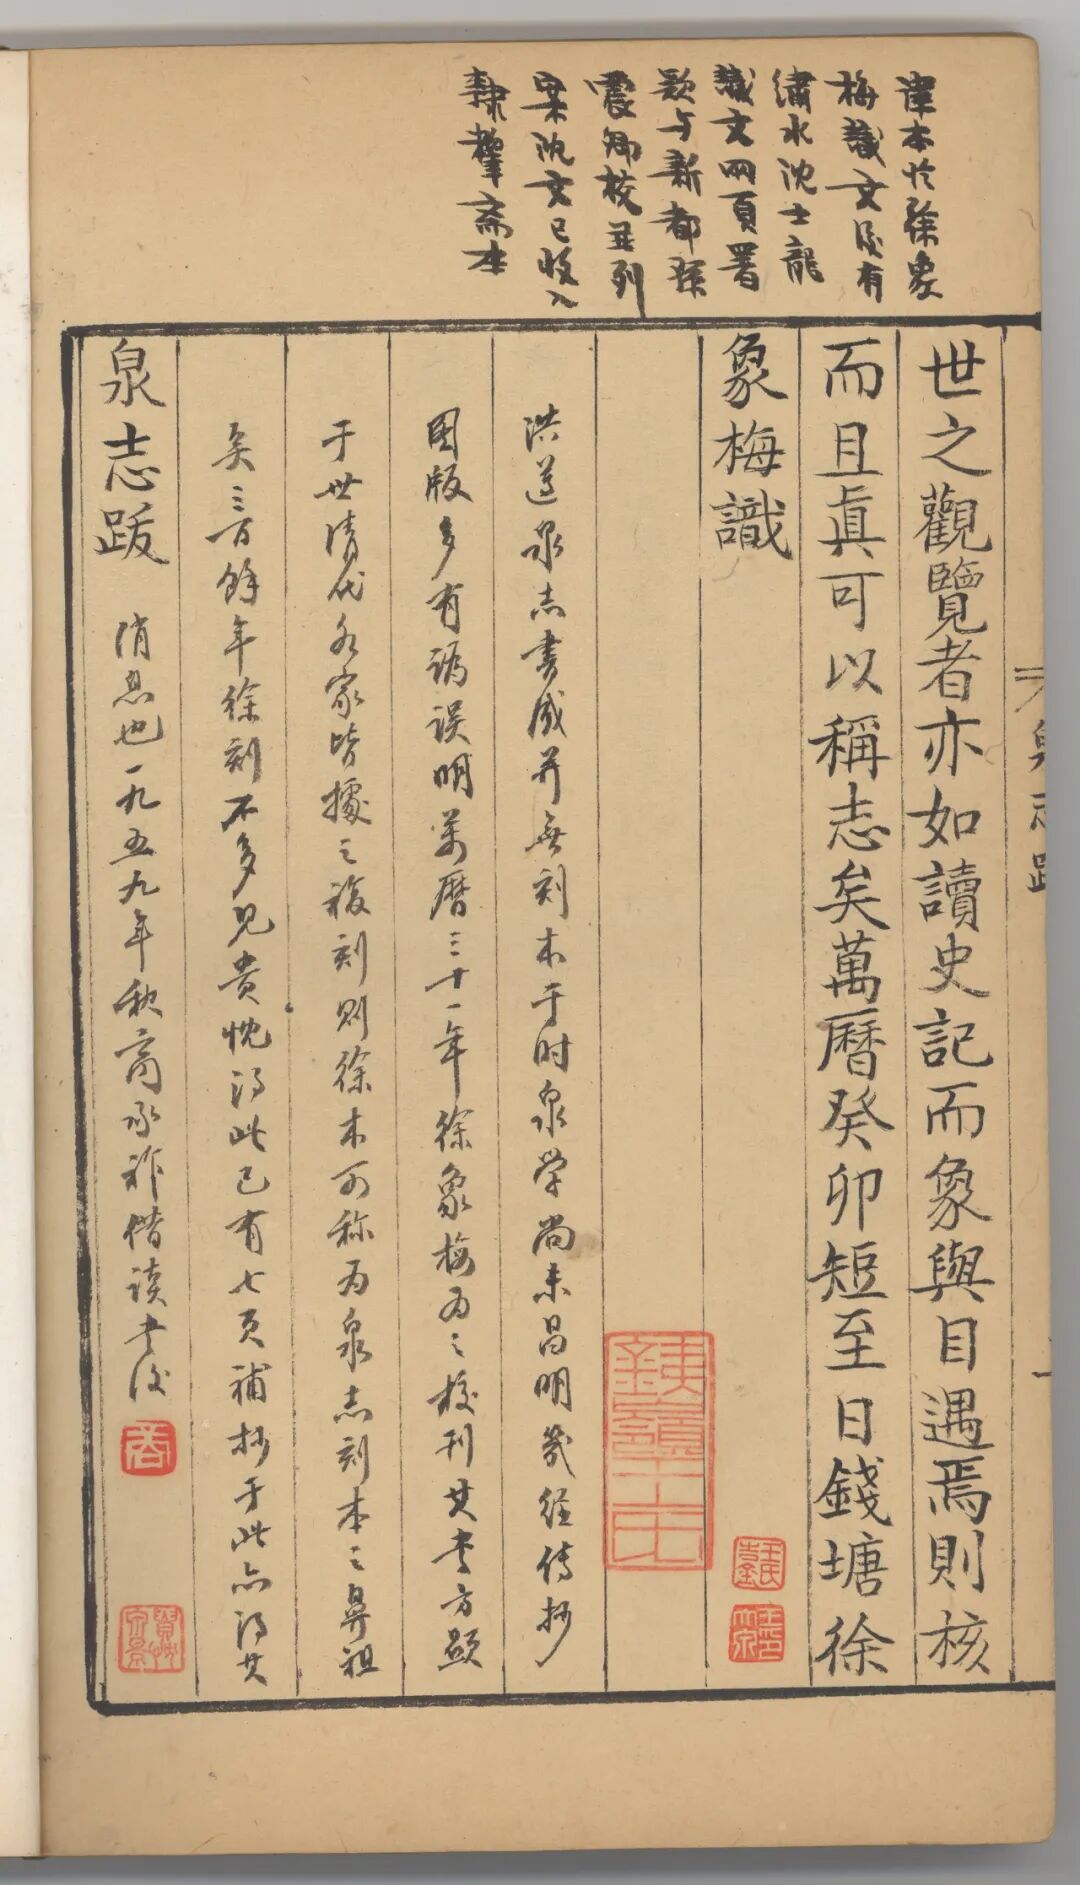 津本於徐象
梅識文後有
繡水沈士龍
識文兩頁署
款与新都孫
震卿校並列
梁沈文已收入
隸釋齋本
世之觀覽者亦如讀史記而象與目遇焉則核
而且眞可以稱志矣萬曆癸卯短至日錢塘徐
象梅識
洪遵泉志書成并無刻本于时泉学尚未昌明几经传抄
图版多有讹误明万历三十一年徐象梅为之校刊其书方显
于世清代各家皆據之複刻则徐本可称为泉志刻本之鼻祖
矣三百馀年徐刻不多见贵忱得此已有七页補抄于此亦得其
泉志跋
消息也一九五九年秋商承祚借读书后
商
泉志跋